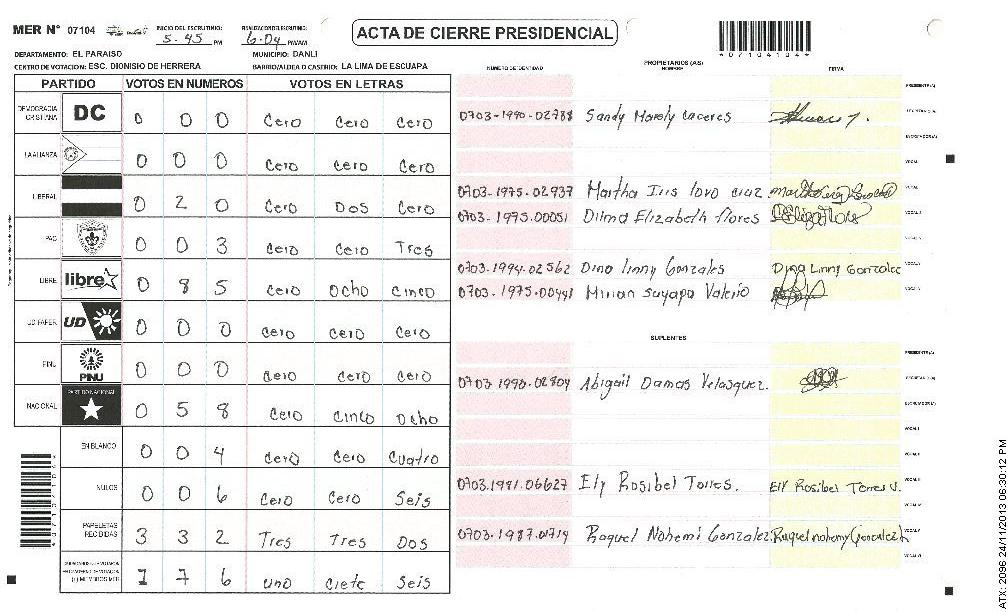 MER Nº 07104 INICIO DEL ESCRUTINIO: 5.45 PM FINALIZACION DEL ESCRUTINIO: 6.04 PM/AM ACTA DE CIERRE PRESIDENCIAL *07104104*
DEPARTAMENTO: EL PARAISO MUNICIPIO: DANLI
CENTRO DE VOTACION: ESC. DIONISIO DE HERRERA BARRIO/ALDEA O CASERIO: LA LIMA DE ESCUAPA
NUMERO DE IDENTIDAD PROPIETARIOS (AS) NOMBRE FIRMA
PARTIDO VOTOS EN NUMEROS VOTOS EN LETRAS
PRESIDENTE(A)
DEMOCRACIA CRISTIANA DC 0 0 0 Cero Cero Cero
0703-1990-02788 Sandy Marely Caceres SECRETARIO(A)
ESCRUTADOR(A)
LA ALIANZA 0 0 0 Cero Cero Cero
VOCAL I
LIBERAL 0 2 0 Cero Dos Cero
0703-1975-02937 Martha Iris lovo cruz
0703-1975-00051 Dilma Elizabeth flores
PAC 0 0 3 Cero Cero Tres
LIBRE libre 0 8 5 Cero Ocho Cinco
0703-1994-02562 Dina linny Gonzales Dina Linny Gonzalez
0703-1975-00441 Mirian Suyapa Valerio
UD FAPER UD 0 0 0 Cero Cero Cero
SUPLENTES
PINU PINU 0 0 0 Cero Cero Cero
PRESIDENTE(A)
0703-1990-02804 Abigail Damas Velasquez. SECRETARIO(A)
NACIONAL PARTIDO NACIONAL 0 5 8 Cero Cinco Ocho
ESCRUTADOR(A)
EN BLANCO 0 0 4 Cero Cero Cuatro
NULOS 0 0 6 Cero Cero Seis
0703-1981-06627 Ely Rosibel Torres. Ely Rosibel Torres V.
PAPELETAS RECIBIDAS 3 3 2 Tres Tres Dos
0703-1987-01719 Raquel Nohemi Gonzalez Raquel nohemy Gonzalez h
1 7 6 uno Ciete Seis
ATX: 2096 24/11/2013 06:30:12 PM